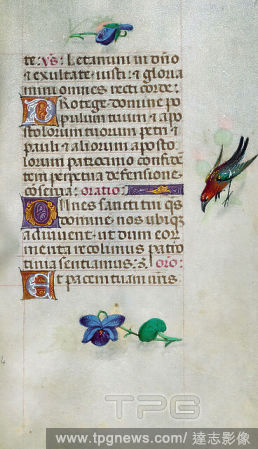 te: vs: Letamini in dño
& exultate iusti: & gloria
mini omnes recti corde:
Protege domine po
pulum tuum & apo
stolorum tuorum petri &
pauli & aliorum aposto
lorum patrocinio confidē
tem perpetua defensione
conserua: oratio:
Omnes sancti tui qs
domine nos ubiq
adiuuent ut dum eorr
merita recolimus patro
cinia sentiamus: oro:
Et pacem tuam nris
TPG
www.tpgnews.com/ 達志影像